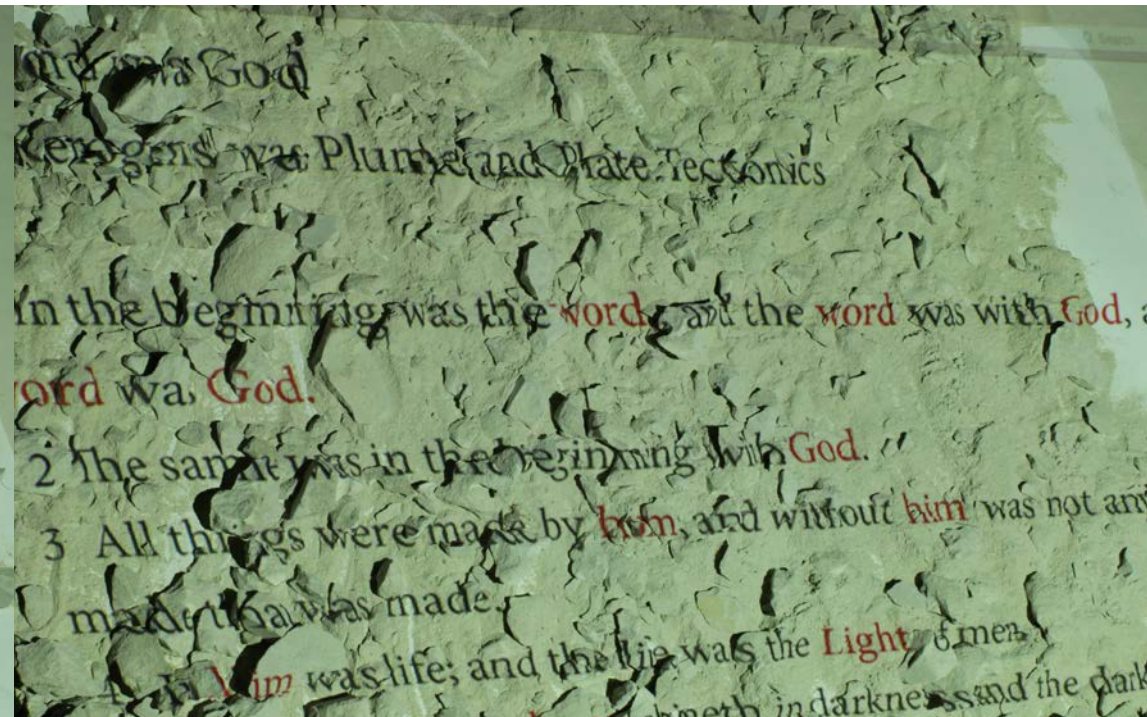 Search
was God
was Plume and Plate Tectonics
In the beginning, was the word, and the word was with God,
word was God.
2 The same was in the beginning with God.
3 All things were made by him, and without him was not any
made that was made.
4 In him was life; and the life was the Light of men.
in darkness and the dark